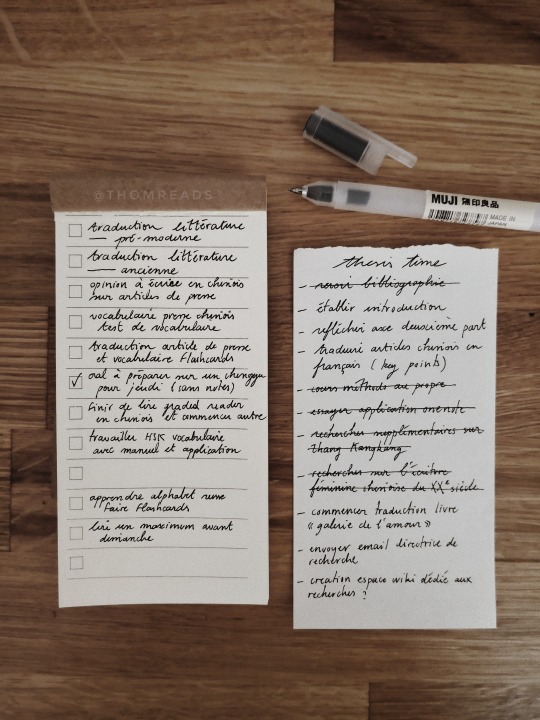 @THOMREADS
traduction littérature
— pré-moderne
traduction littérature
— ancienne
opinion à écrire en chinois
sur articles de presse
vocabulaire presse chinois
test de vocabulaire
traduction article de presse
et vocabulaire flashcards
oral à préparer sur un chengyu
pour jeudi (sans notes)
finir de lire graded reader
en chinois et commencer autre
travailler HSK vocabulaire
avec manuel et application
apprendre alphabet russe
faire flashcards
lire un maximum avant
dimanche
MUJI 無印良品
MADE IN
JAPAN
thesis time
- bibliographie
- établir introduction
- réfléchir axe deuxième part
- traduire articles chinois en
français (key points)
- cours méthodo au propre
- essayer application onenote
- recherches supplémentaires sur
Zhang Kangkang
- recherches sur l'écriture
féminine chinoise du XXe siècle
- commencer traduction livre
« galerie de l'amour »
- envoyer email directrice de
recherche
- création espace wiki dédié aux
recherches ?